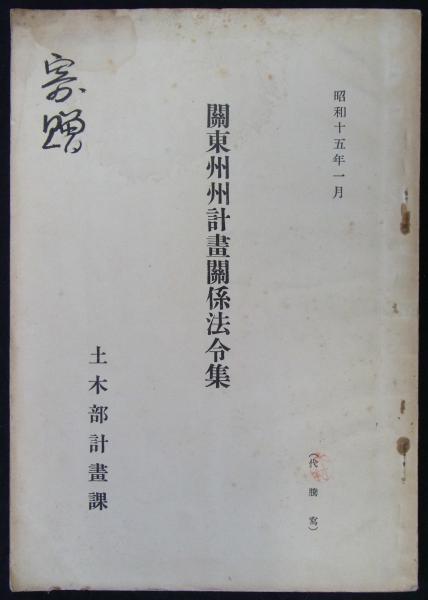 昭和十五年一月
(代謄寫)
關東州州計畫關係法令集
土木部計畫課
寄贈